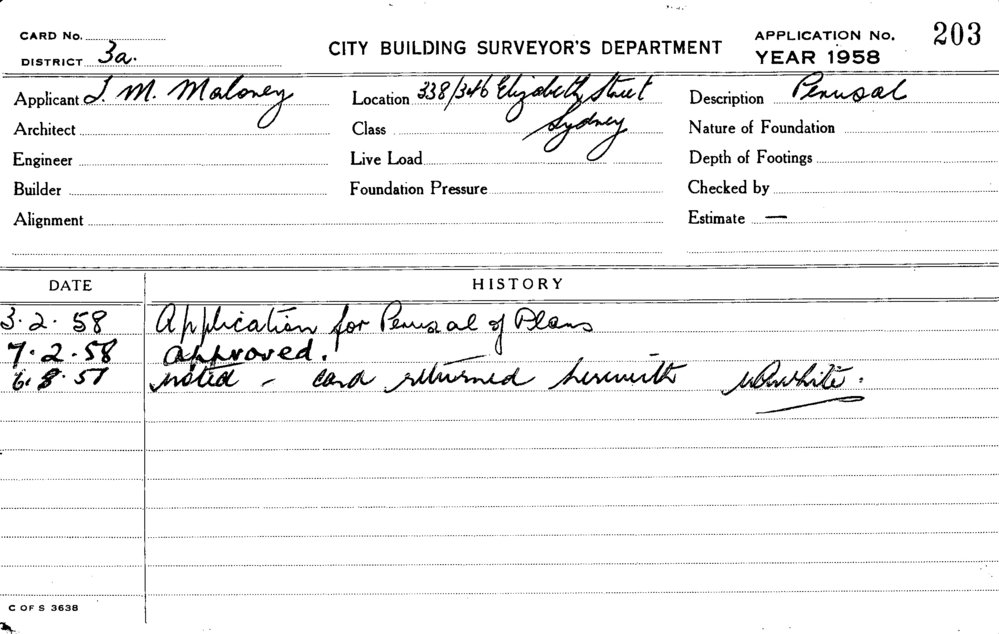 CARD No.
DISTRICT 3a.
CITY BUILDING SURVEYOR'S DEPARTMENT
APPLICATION No. 203
YEAR 1958
Applicant J. M. Maloney Location 338/346 Elizabeth Street Description Perusal
Architect Class Sydney Nature of Foundation
Engineer Live Load Depth of Footings
Builder Foundation Pressure Checked by
Alignment Estimate —
DATE HISTORY
3.2.58 Application for Perusal of Plans
7.2.58 approved.
6.8.58 noted – card returned herewith
C OF S 3638